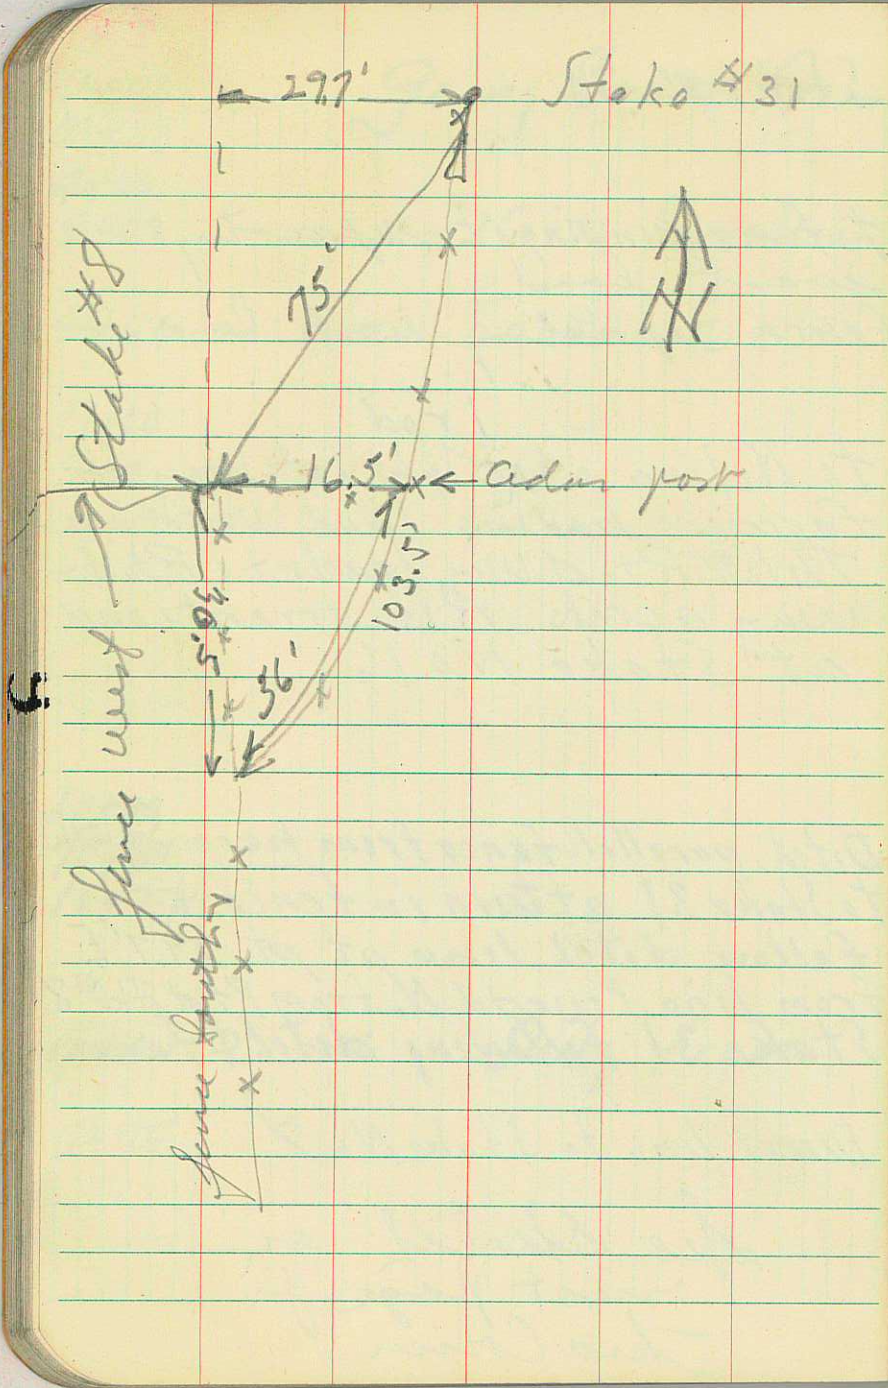 29.7' Stake #31
N
75'
Stake #8
16.5' Cedar post
103.5'
36'
fence west
fence south